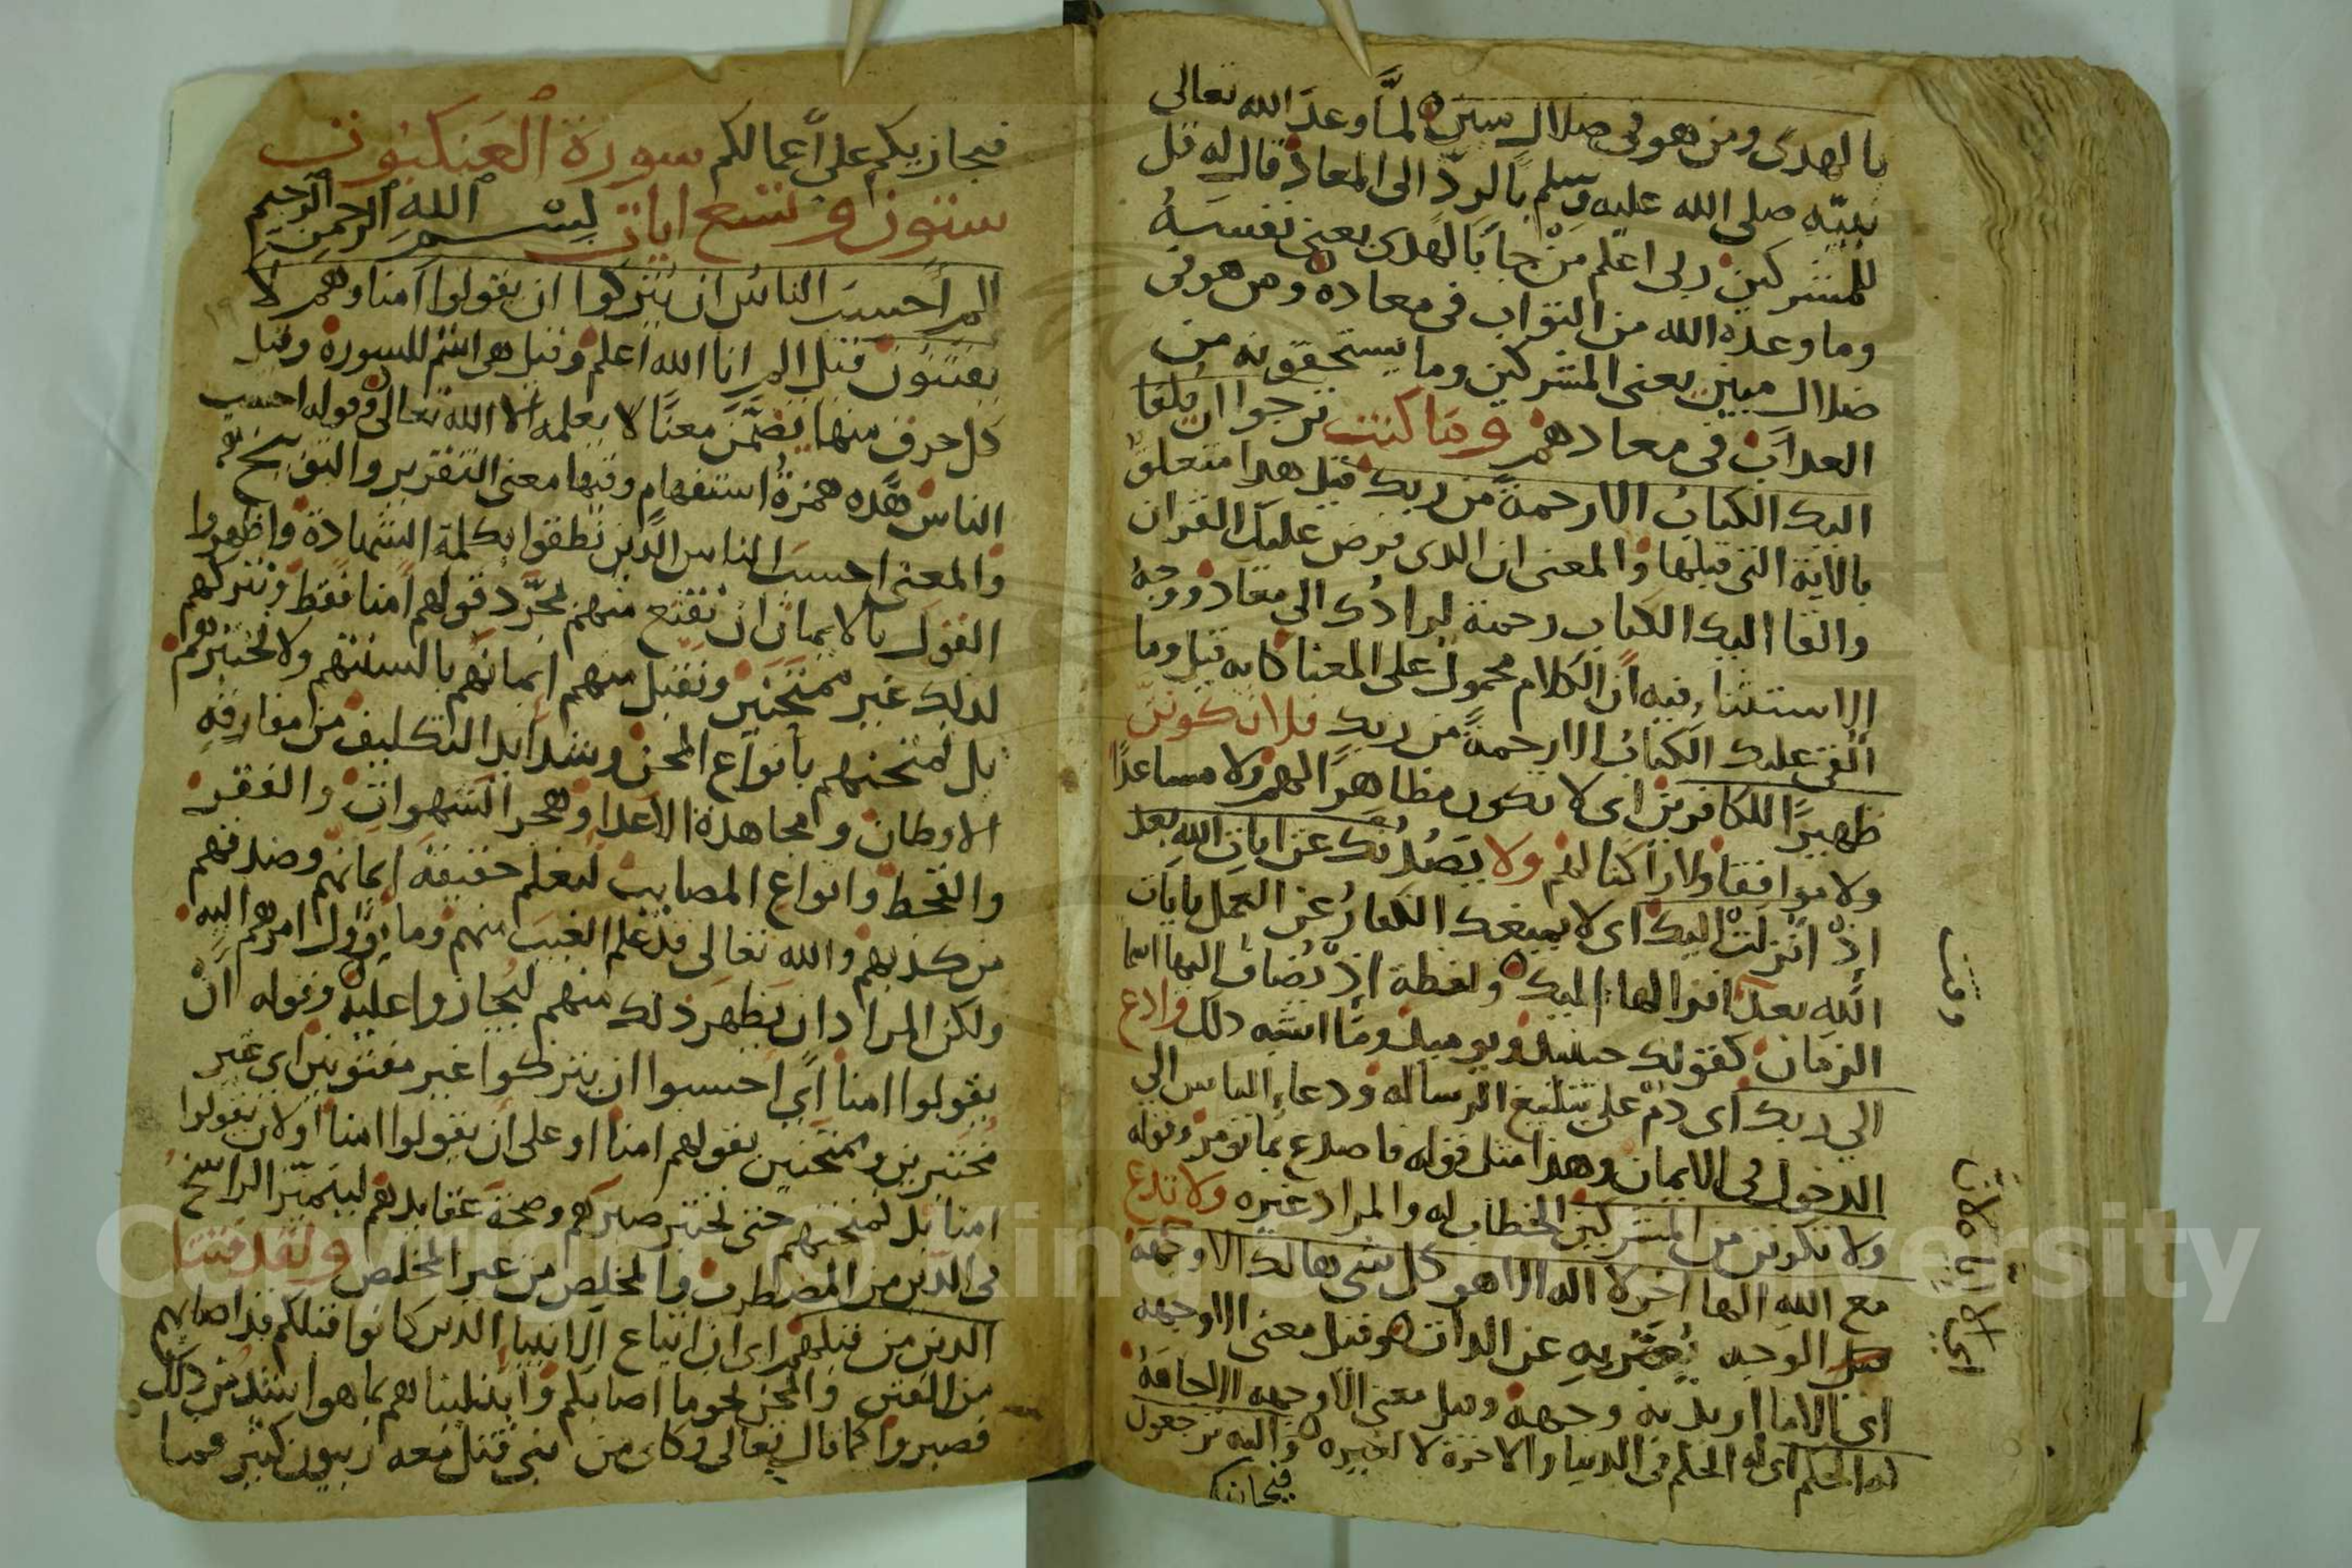 بالهدى ومن هو فى ضلال مبين لمّا وعد الله تعالى
نبيّه صلى الله عليه وسلم بالردّ الى المعاد قال له قل
للمشركين ربى اعلم من جا بالهدى يعنى نفسه
وما وعده الله من الثواب فى معاده ومن هو فى
ضلال مبين يعنى المشركين وما يستحقونه من
العذاب فى معادهم وما كنت ترجوا ان يلقا
اليك الكتاب الا رحمة من ربك قيل هذا متعلق
بالاية التى قبلها والمعنى ان الذى فرض عليك القران
والقا اليك الكتاب رحمة لرادك الى معاد ووجه
الاستثناء فيه ان الكلام محمول على المعنا كانه قيل وما
القى عليك الكتاب الا رحمة من ربك فلا تكونن
ظهيرًا للكافرين اى لا تكون مظاهرًا لهم ولا مساعدًا
ولا موافقا ولا راكنا لهم ولا يصدنك عن ايات الله بعد
اذ انزلت اليك اى لا يمنعك الكفار عن العمل بايات
الله بعد انزالها اليك ولفظة اذ تضاف اليها اسما
الزمان كقولك حينئذ ويوميذ وما اشبه ذلك وادع
الى ربك اى دم على تبليغ الرساله ودعاء الناس الى
الدخول فى الايمان وهذا مثل قوله فاصدع بما تومر وقوله
ولا تكونن من المشركين الخطاب له والمراد غيره ولا تدع
مع الله الها اخر لا اله الا هو كل شى هالك الا وجهه
الوجه يعبّر به عن الذات وقيل معنى الا وجهه
اى الا ما اريد به وجهه وقيل معنى الا وجهه الا جاهه
له الحكم اى له الحكم فى الدنيا والاخرة لا لغيره واليه ترجعون
فيجازيكم
وقت
فيجازيكم على اعمالكم سورة العنكبوت
ستون وتسع ايات بسم الله الرحمن الرحيم
الم احسب الناس ان يتركوا ان يقولوا آمنا وهم لا
يفتنون قيل الم انا الله اعلم وقيل هى اسم للسورة وقيل
كل حرف منها يضمّن معنًا لا يعلمه الا الله تعالى وقوله احسب
الناس هذه همزة استفهام وفيها معنى التقرير والتوبيخ
والمعنى احسب الناس الذين نطقوا بكلمة الشهادة واظهروا
القول بالايمان ان نقنع منهم بمجرّد قولهم امنا فقط ونتركهم
لذلك غير ممتحنين ونقبل منهم ايمانهم بالسنتهم ولا نختبرهم
بل نمتحنهم بانواع المحن وشدايد التكليف من مفارقة
الاوطان ومجاهدة الاعدا وهجر الشهوات والفقر
والقحط وانواع المصايب ليعلم حقيقة ايمانهم وصدقهم
من كذبهم والله تعالى قد علم الغيب منهم وما يؤول امرهم اليه
ولكن المراد ان يظهر ذلك منهم ليجازوا عليه وقوله ان
يقولوا امنا اى احسبوا ان يتركوا غير مفتونين اى غير
مختبرين وممتحنين بقولهم امنا او على ان يقولوا امنا او لان يقولوا
امنا بل نمتحنهم حتى نختبر صبرهم وصحة عقايدهم ليتميّز الراسخ
فى الدين من المضطرب والمخلص من غير المخلص ولقد فتنا
الذين من قبلهم اى ان اتباع الانبيا الذين كانوا قبلكم قد اصابهم
من الفتن والمحن نحو ما اصابكم وابتليناهم بما هو اشد من ذلك
فصبروا كما قال تعالى وكاى من نبى قتل معه ربيون كثير فما
Copyright © King Saud University